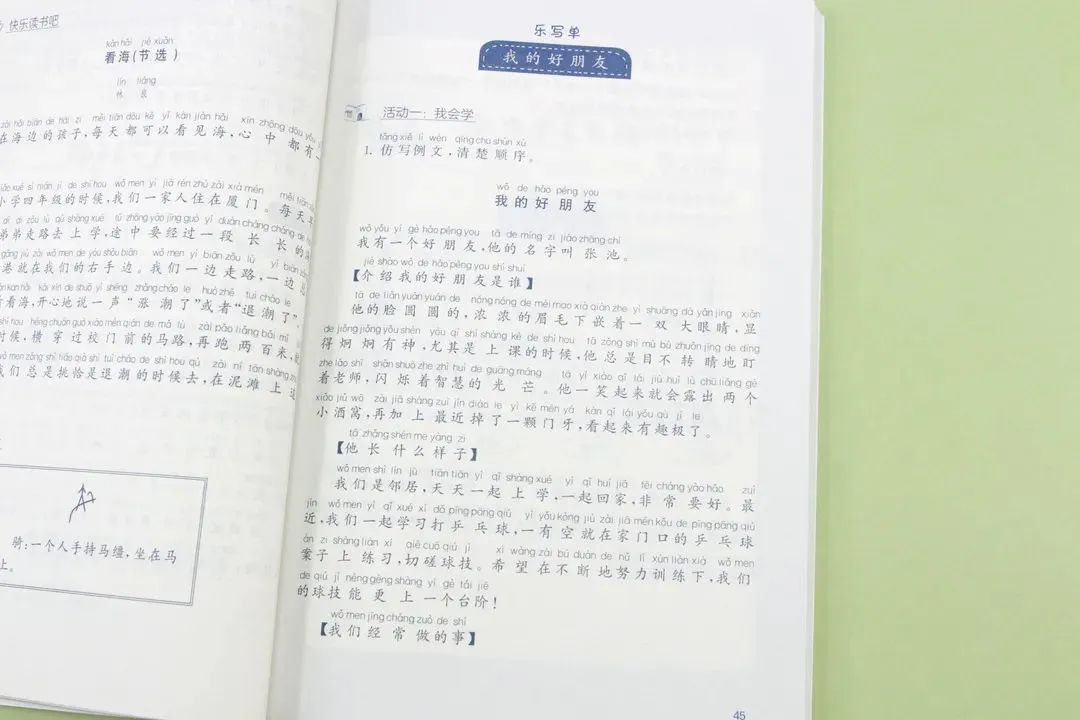 快乐读书吧
kàn hǎi jié xuǎn
看海(节选)
lín liáng
林良
zài hǎi biān de hái zi měi tiān dōu kě yǐ kàn jiàn hǎi xīn zhōng dōu yǒu
在海边的孩子,每天都可以看见海,心中都有一
xiǎo xué sì nián jí de shí hou wǒ men yì jiā rén zhù zài xià mén měi tiān
小学四年级的时候,我们一家人住在厦门。每天早
dì di zǒu lù qù shàng xué tú zhōng yào jīng guò yí duàn cháng cháng de
弟弟走路去上学,途中要经过一段长长的
gǎng jiù zài wǒ men de yòu shǒu biān wǒ men yì biān zǒu lù yì biān
港就在我们的右手边。我们一边走路,一边
kàn hǎi kāi xīn de shuō yì shēng zhǎng cháo le huò zhě tuì cháo le
看海,开心地说一声“涨潮了”或者“退潮了”。
shí hou héng chuān guò xiào mén qián de mǎ lù zài pǎo liǎng bǎi mǐ
时候,横穿过校门前的马路,再跑两百米,
wǒ men zǒng shì tiāo qià shì tuì cháo de shí hou qù zài ní tān shàng
我们总是挑恰是退潮的时候去,在泥滩上
骑:一个人手持马缰,坐在马
上。
乐写单
我的好朋友
活动一:我会学
fǎng xiě lì wén qīng chu shùn xù
1. 仿写例文,清楚顺序。
wǒ de hǎo péng you
我的好朋友
wǒ yǒu yí gè hǎo péng you tā de míng zi jiào zhāng chí
我有一个好朋友,他的名字叫张池。
jiè shào wǒ de hǎo péng you shì shuí
【介绍我的好朋友是谁】
tā de liǎn yuán yuán de nóng nóng de méi mao xià qiàn zhe yì shuāng dà yǎn jing xiǎn
他的脸圆圆的,浓浓的眉毛下嵌着一双大眼睛,显
de jiǒng jiǒng yǒu shén yóu qí shì shàng kè de shí hou tā zǒng shì mù bù zhuǎn jīng de dīng
得炯炯有神,尤其是上课的时候,他总是目不转睛地盯
zhe lǎo shī shǎn shuò zhe zhì huì de guāng máng tā yí xiào qǐ lái jiù huì lù chū liǎng gè
着老师,闪烁着智慧的光芒。他一笑起来就会露出两个
xiǎo jiǔ wō zài jiā shàng zuì jìn diào le yì kē mén yá kàn qǐ lái yǒu qù jí le
小酒窝,再加上最近掉了一颗门牙,看起来有趣极了。
tā zhǎng shén me yàng zi
【他长什么样子】
wǒ men shì lín jū tiān tiān yì qǐ shàng xué yì qǐ huí jiā fēi cháng yào hǎo zuì
我们是邻居,天天一起上学,一起回家,非常要好。最
jìn wǒ men yì qǐ xué xí dǎ pīng pāng qiú yì yǒu kòng jiù zài jiā mén kǒu de pīng pāng qiú
近,我们一起学习打乒乓球,一有空就在家门口的乒乓球
àn zi shàng liàn xí qiē cuō qiú jì xī wàng zài bú duàn de nǔ lì xùn liàn xià wǒ men
案子上练习,切磋球技。希望在不断地努力训练下,我们
de qiú jì néng gèng shàng yí gè tái jiē
的球技能更上一个台阶!
wǒ men jīng cháng zuò de shì
【我们经常做的事】
45